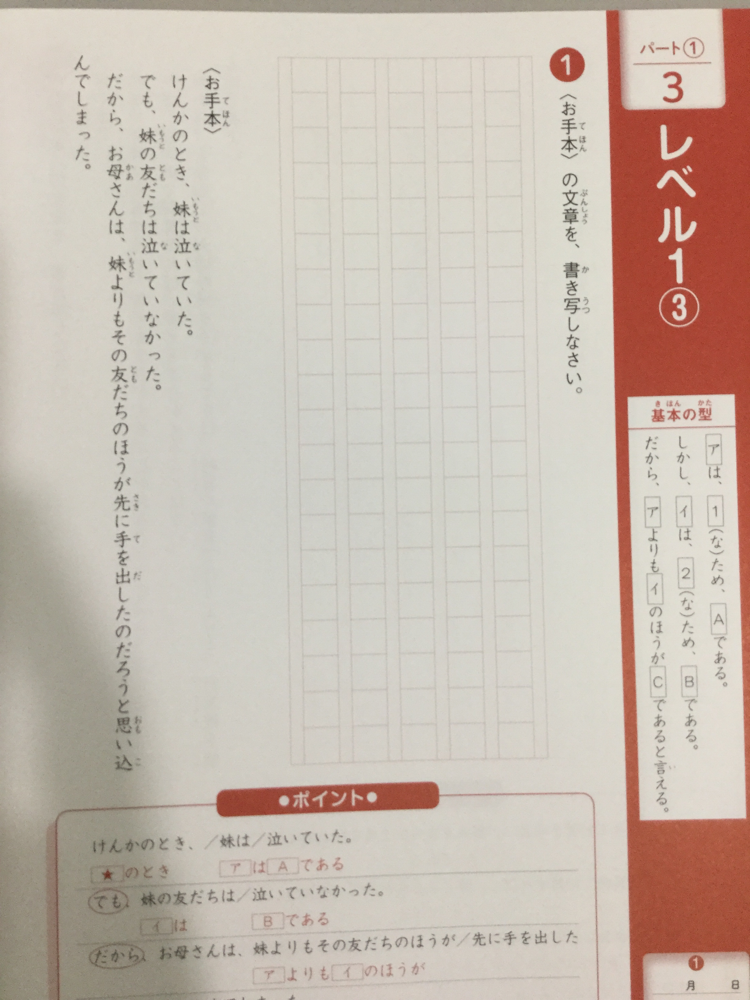 パート①
3
レベル1③
基本の型
アは、1(な)ため、Aである。
しかし、イは、2(な)ため、Bである。
だから、アよりもイのほうがCであると言える。
❶
〈お手本〉の文章を、書き写しなさい。
〈お手本〉
けんかのとき、妹は泣いていた。
でも、妹の友だちは泣いていなかった。
だから、お母さんは、妹よりもその友だちのほうが先に手を出したのだろうと思い込
んでしまった。
●ポイント●
けんかのとき、／妹は／泣いていた。
★のとき アはAである
でも、妹の友だちは／泣いていなかった。
イは Bである
だから、お母さんは、妹よりもその友だちのほうが／先に手を出した
アよりもイのほうが
❶
月 日